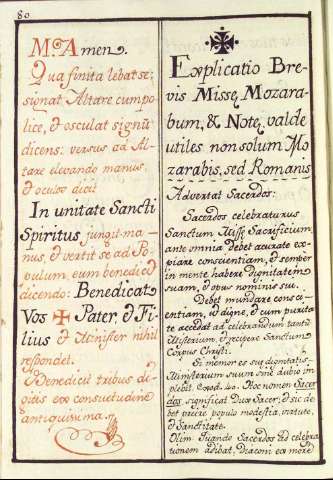 80
M. Amen.
Qua finita lebat se;
signat Altare cum po-
lice, & osculat signũ
dicens: versus ad Al-
tare elevando manus,
& oculos dicit
In unitate Sancti
Spiritus jungit ma-
nus, & vertit se ad Po-
pulum, eum benedicẽ
dicendo: Benedicat
Vos ✠ Pater, & Fi-
lius & Minister nihil
respondet.
Benedicit tribus di-
gitis ex consuetudine
antiquisima.
Explicatio Bre-
vis Missę Mozara-
bum, & Notę valde
utiles non solum Mo
zarabis, sed Romanis
Advertat Sacerdos:
Sacerdos celebraturus
Sanctum Missę Sacrificium
ante omnia debet accurate ex-
piare conscientiam, & semper
in mente habere Dignitatem
suam, & opus nominis sui.
Debet mundare consci-
entiam, ut digne, & cum purita-
te accedat ad celebrandum tantũ
Misterium, & recipere Sanctum
Corpus Christi.
Si memor es suę dignitatis
Ministerium suum sine dubio im
plebit. Hoc nomen Sacer
dos significat Dux Sacer, & sic de
bet pręire populo modestia, virtute,
& Sanctitate.
Olim Quando Sacerdos ad celebra
tionem adibat, Diaconi ex more